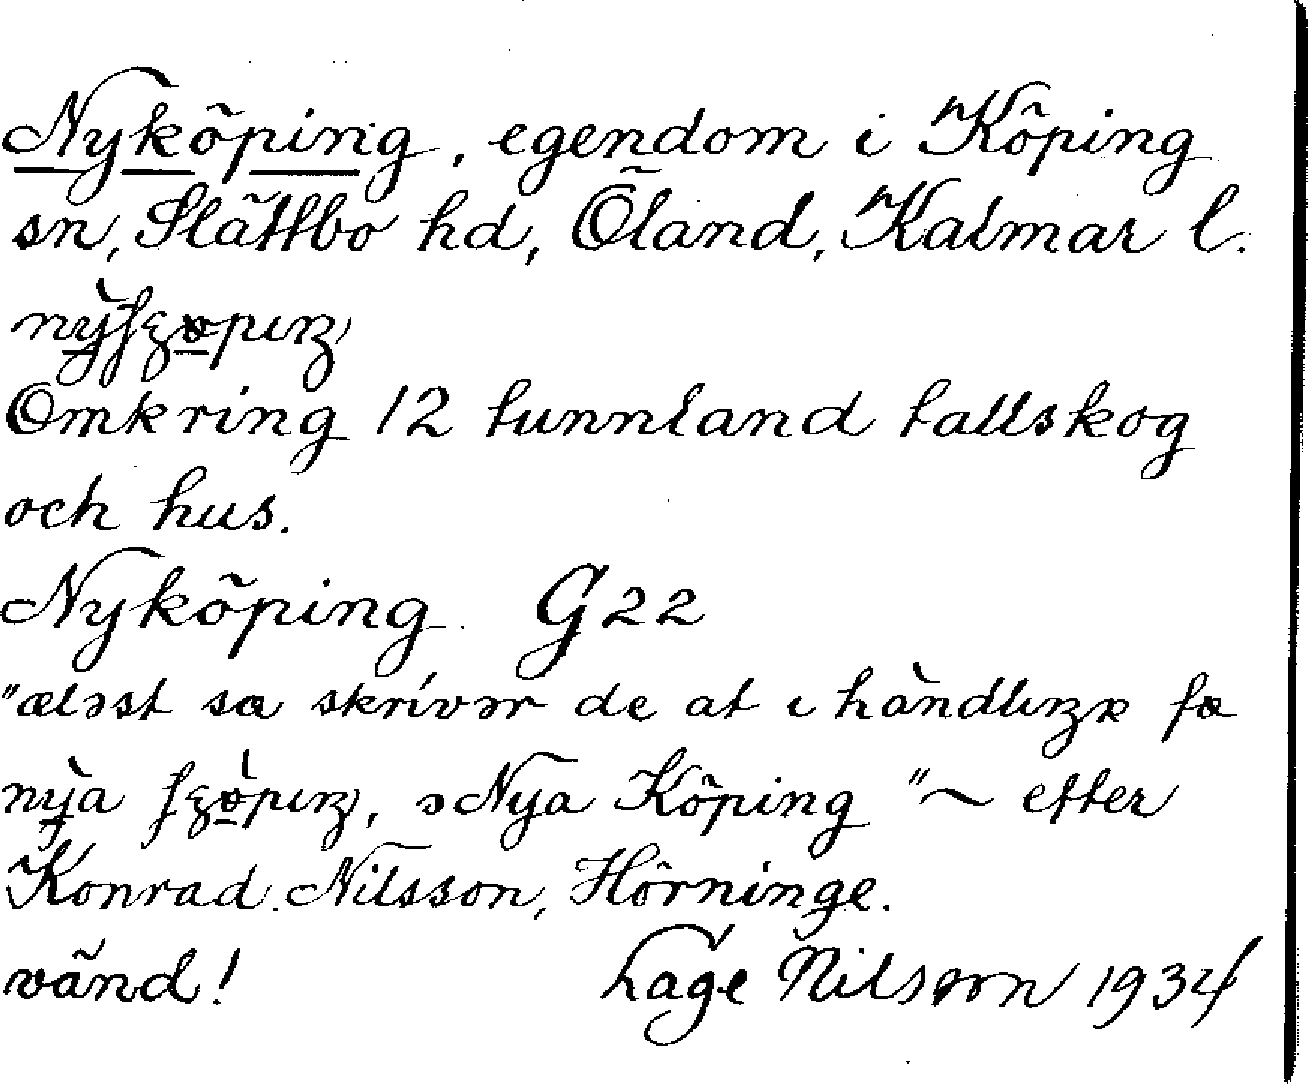 Nyköping, egendom i Köping
sn, Slättbo hd, Öland, Kalmar l.
Omkring 12 tunnland tallskog
och hus.
Nyköping G22
"æləst sa skrívər de at ɩ hàndlɩŋɒ fœ
nỳa, ɔ Nya Köping "~ efter
Konrad Nilsson, Hörninge.
vänd! Lage Nilsson 1934